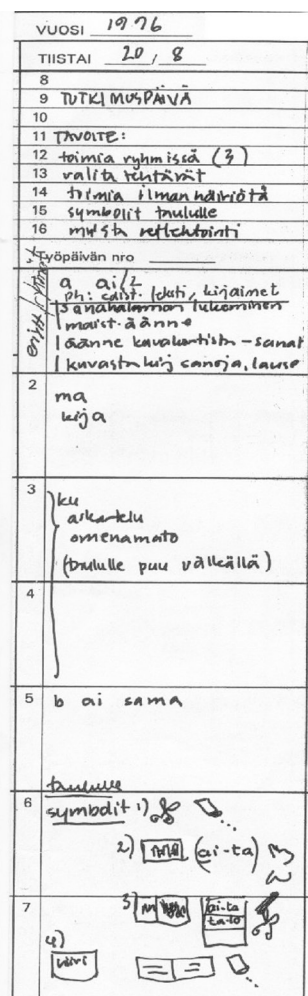 VUOSI 1996
TIISTAI 20 / 8
8
9 TUTKIMUSPÄIVÄ
10
11 TAVOITE:
12 toimia ryhmissä (3)
13 valita tehtävät
14 toimia ilman häiriötä
15 symbolit taululle
16 muista reflektointi
Työpäivän nro
a ai/2
ph: teksti, kirjaimet
sanahahmon lukeminen
maist. äänne
äänne kuvakortista - sanat
kuvasta kirj sanoja, lause
2
ma
kirja
3
ku
aikartelu
omenamato
(taululle puu välkällä)
4
5 b ai sama
taululle
6
symbolit 1)
2) (ai-ta)
7
3) ai-ta
ta-lo
4)